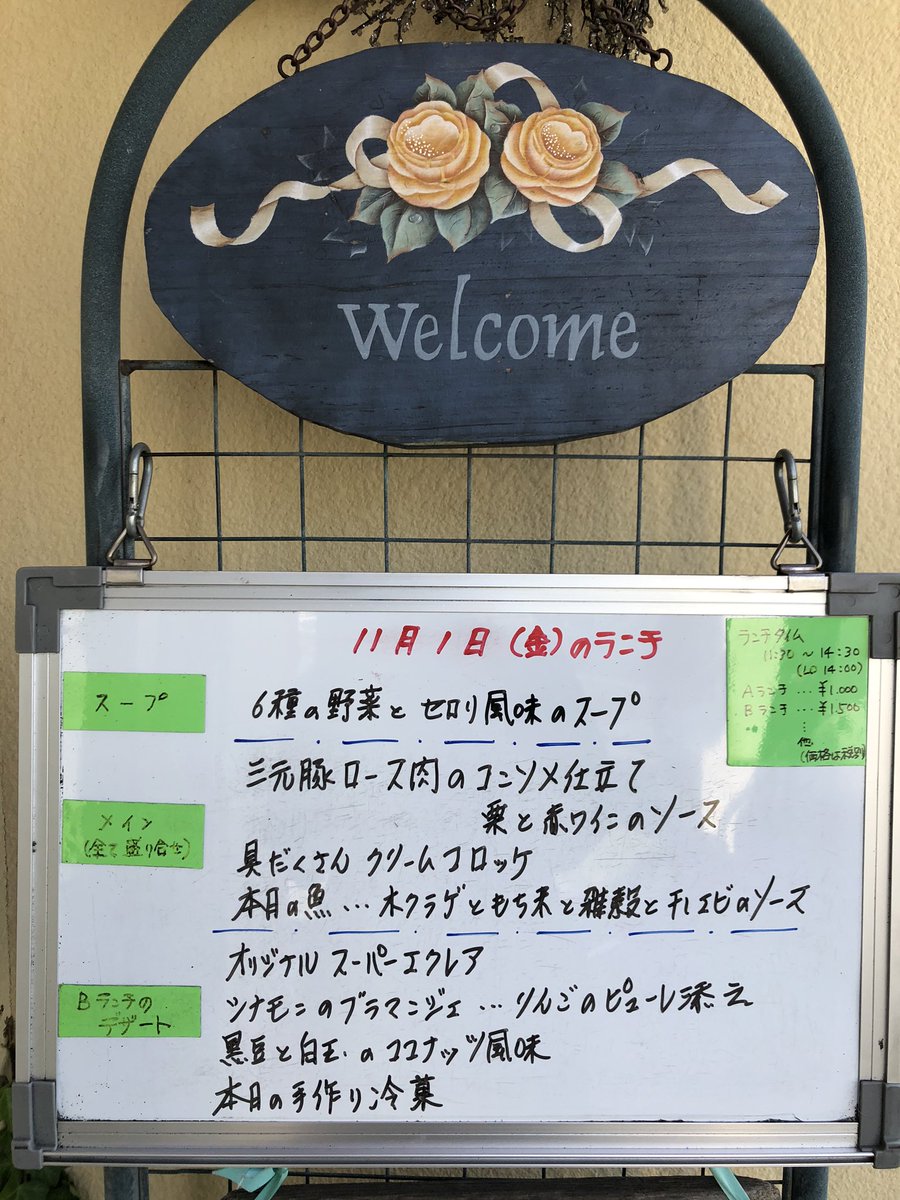 Welcome
11月1日(金)のランチ
ランチタイム
11:30 〜 14:30
(LO 14:00)
Aランチ … ¥1.000
Bランチ … ¥1.500
⋮
他
(価格は税別)
スープ
6種の野菜とセロリ風味のスープ
メイン
(全て盛り合せ)
三元豚ロース肉のコンソメ仕立て
栗と赤ワインのソース
具だくさん クリームコロッケ
本日の魚…木クラゲともち米と雑穀と干しエビのソース
Bランチの
デザート
オリジナル スーパーエクレア
シナモンのブラマンジェ…りんごのピューレ添え
黒豆と白玉のココナッツ風味
本日の手作り冷菓